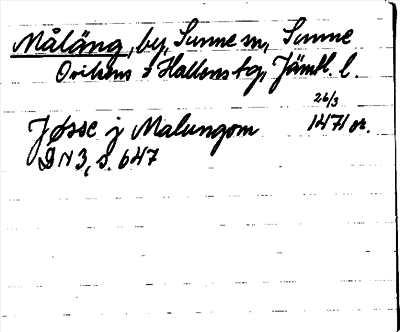 Målång, by, Sunne sn, Sunne
Ovikens o Hallens tg, Jämtl. l.
26/3
Jösse j Malungom 1471 or.
DN 3, s. 647